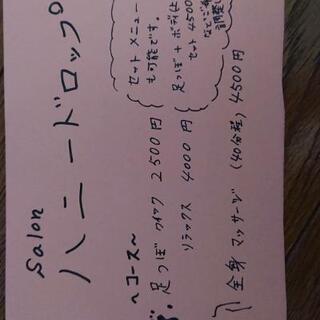 Salon
ハニードロップ
〜コース〜
足つぼ クイック 2500円
リラックス 4000円
全身 マッサージ (40分程) 4500円
セットメニュー
も可能です。
足つぼ+ボディ
セット 4500
など
調整